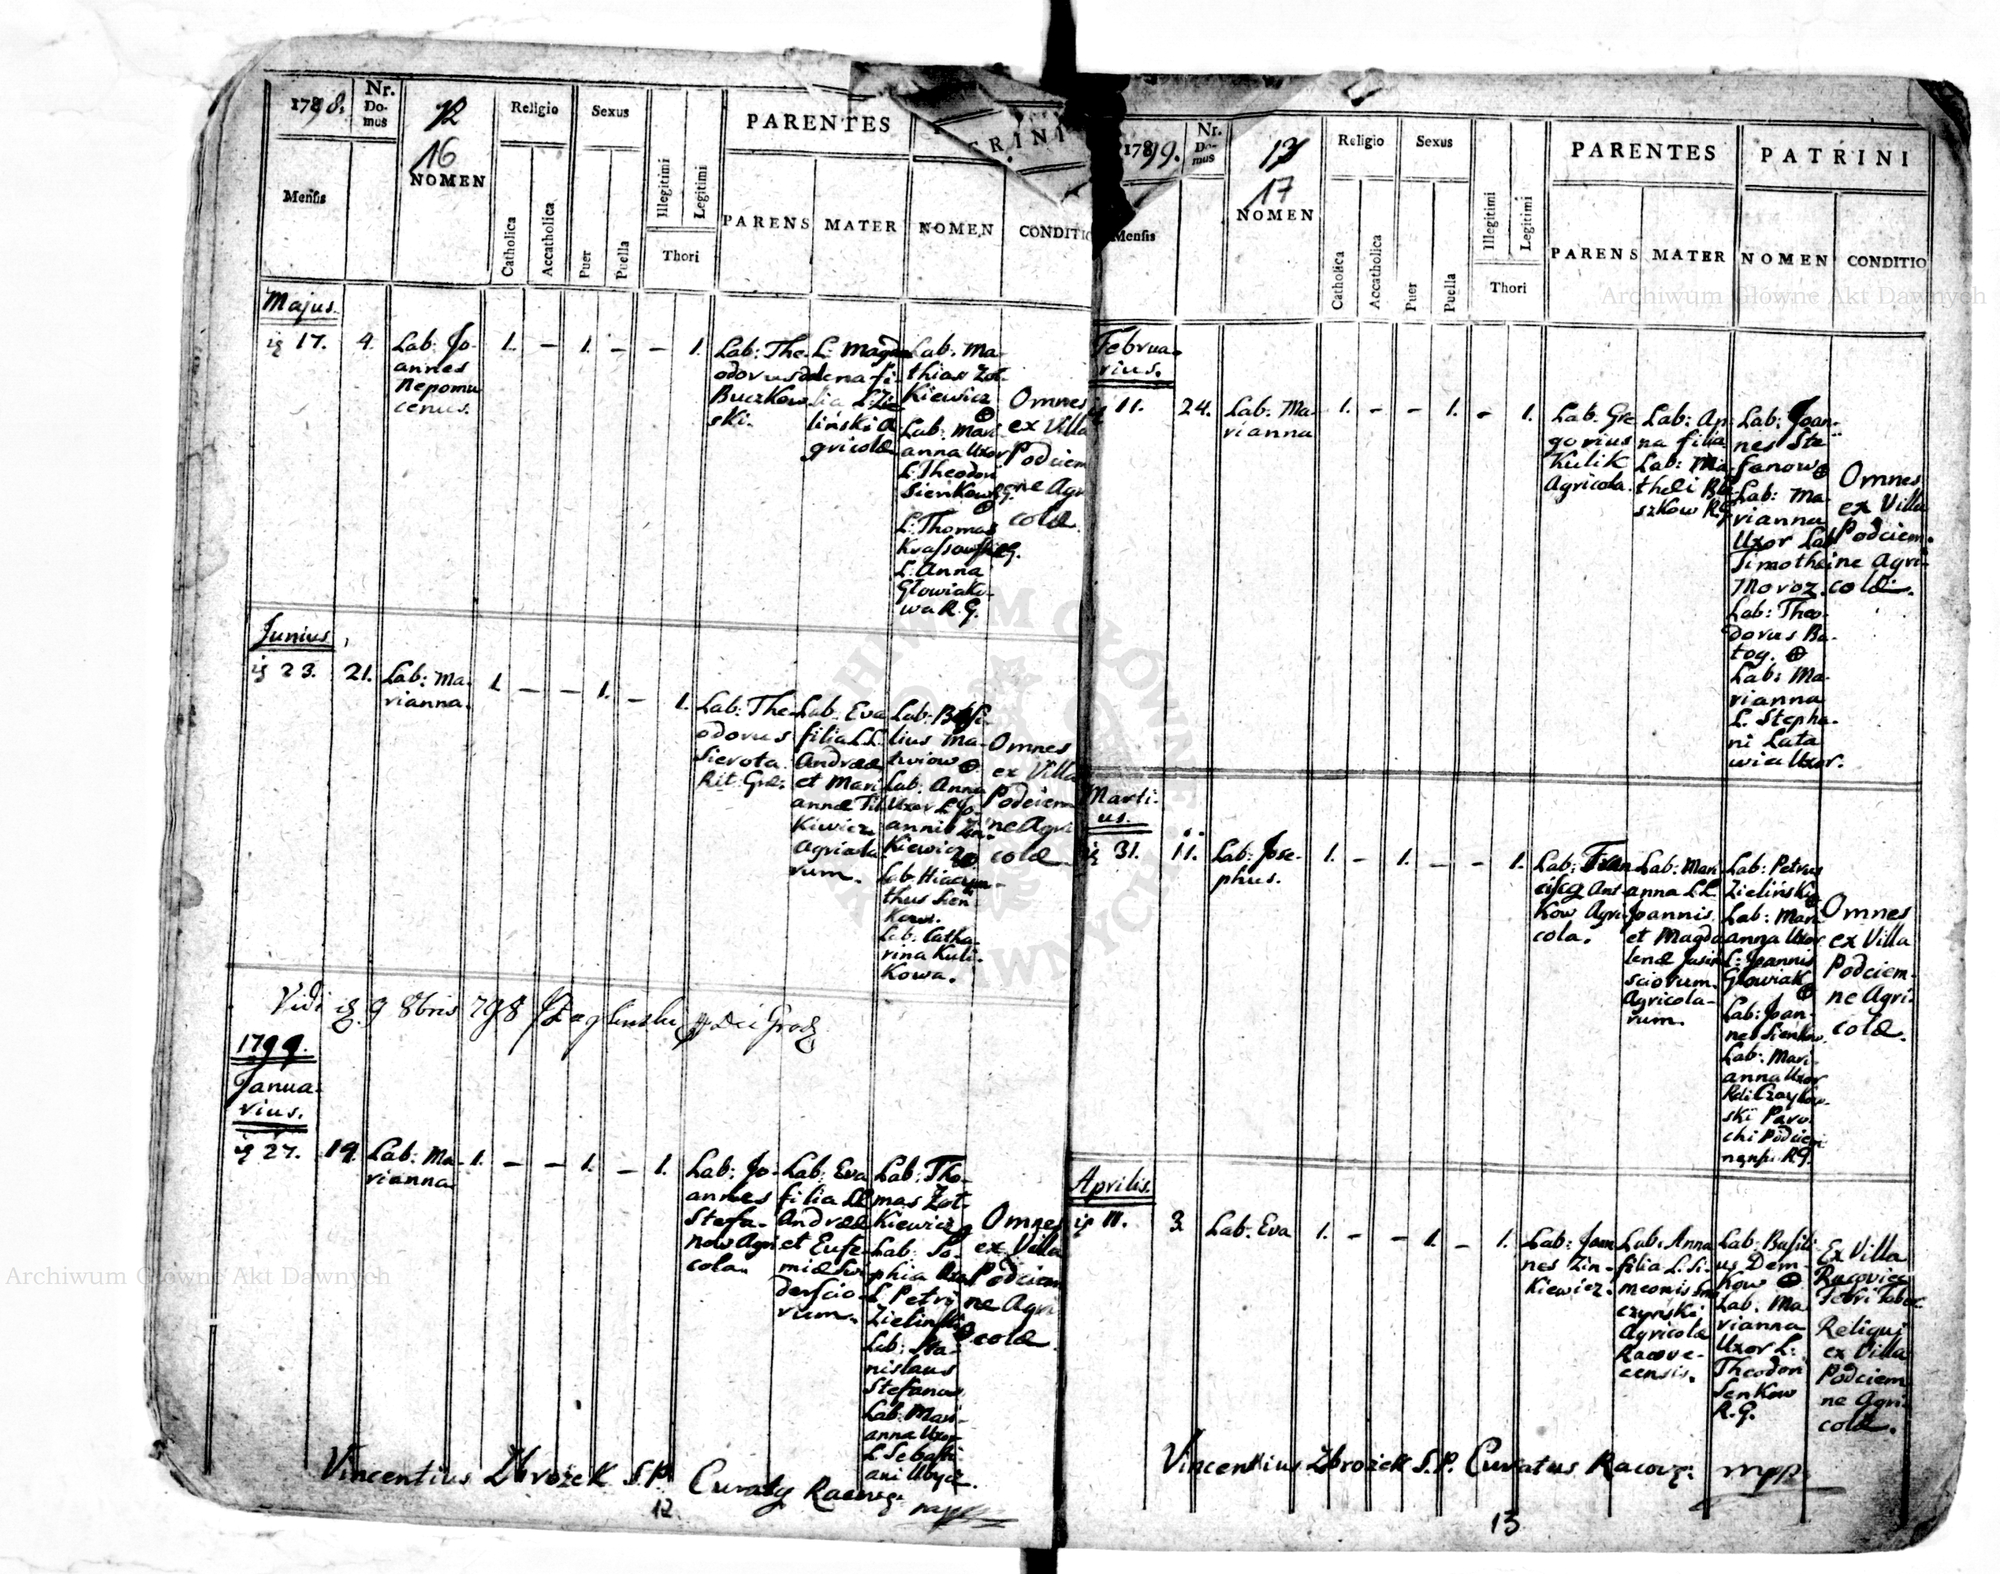 1798.
Nr.
Do-
mus
12
16
NOMEN
Religio
Sexus
PARENTES
TRINI
Mensis
Catholica
Accatholica
Puer
Puella
Illegitimi
Legitimi
Thori
PARENS
MATER
NOMEN
CONDITIO
Majus.
17.
4.
Lab: Jo-
annes
Nepomu
cenus.
1. — 1. — — 1.
Lab: The-
odorus
Buczkow
ski.
L: Magda
lena fi-
lia L: Zie
liński a
gricolæ
Lab: Ma-
thias Żoł-
Kiewicz
Lab: Mari
anna Uxor
L: Theodori
Sienkow RG.
L: Thomas
Krassowski RG.
L: Anna
Głowiako-
wa R. G.
Omnes
ex Villa
Podciem
ne Agri
colæ
Junius
23.
21.
Lab: Ma-
rianna.
1. — — 1. — 1.
Lab: The-
odorus
Sierota
Rit: Græ:
Lab: Eva
filia LL.
Andreæ
et Mari
annæ
Kiewicz
Agricola
rum.
Lab: Basi-
lius Ma-
twiow
Lab: Anna
Uxor L: Jo-
annis
Kiewicz
Lab: Hiacyn-
thus Sien
Kow.
Lab: Catha-
rina Kuli-
Kowa.
Omnes
ex Villa
Podciem
ne Agri
colæ
Vidi 9 8bris 798
1799.
Janua-
rius.
27.
19.
Lab: Ma-
rianna
1. — — 1. — 1.
Lab: Jo-
annes
Stefa-
now Agri
cola.
Lab: Eva
filia LL
Andreæ
et Eufe-
miæ Swi
derscio-
rum.
Lab: Tho-
mas Żoł-
Kiewicz
Lab: So-
phia Uxor
L Petri
Zielinski
Lab: Sta-
nislaus
Stefanow
Lab: Mari-
anna Uxor
L Sebasti
ani
Omnes
ex Villa
Podciem
ne Agri
colæ
Vincentius Zbrożek S.P. Curatg Racov: mpp
12.
1799.
Nr.
Do-
mus
13
17
NOMEN
Religio
Sexus
PARENTES
PATRINI
Mensis
Catholica
Accatholica
Puer
Puella
Illegitimi
Legitimi
Thori
PARENS
MATER
NOMEN
CONDITIO
Februa-
rius.
11.
24.
Lab: Ma-
rianna
1. — — 1. — 1.
Lab: Gre
gorius
Kulik
Agricola.
Lab: An
na filia
Lab: Ma-
thei
szkow R.G.
Lab: Joan-
nes Ste
fanow
Lab: Ma-
rianna
Uxor Lab
Timothei
Moroz.
Lab: Theo-
dorus Ba-
toy.
Lab: Ma-
rianna
L. Stepha-
ni Lata
wia Uxor.
Omnes
ex Villa
Podciem-
ne Agri-
colæ.
Marti-
us.
31.
11.
Lab: Jose-
phus.
1. — 1. — — 1.
Lab: Fran
ciscg Ant-
Kow Agri-
cola.
Lab: Mari
anna LL
Joannis
et Magda
lenæ Jasin
sciorum.
Agricola-
rum.
Lab: Petrus
Zieliński
Lab: Mari
anna Uxor
L: Joannis
Głowiak
Lab: Joan-
nes Sienkow
Lab: Mari-
anna Uxor
Rdi Czaykow-
ski Paro-
chi Podciem
nensis RG.
Omnes
ex Villa
Podciem-
ne Agri-
colæ.
Aprilis.
11.
3.
Lab. Eva
1. — — 1. — 1.
Lab: Joan
nes Zin-
Kiewicz.
Lab: Anna
filia L: Si-
meonis
czynski
Agricolæ
Racove-
censis.
Lab: Basili
us Dem-
Kow
Lab. Ma
rianna
Uxor L:
Theodori
Senkow
R. G.
Ex Villa
Racoviec
Febri
Reliqui
ex Villa
Podciem
ne Agri
colæ.
Vincentius Zbrożek S.P. Curatus Racov: mpp
13
Archiwum Główne Akt Dawnych
Archiwum Główne Akt Dawnych